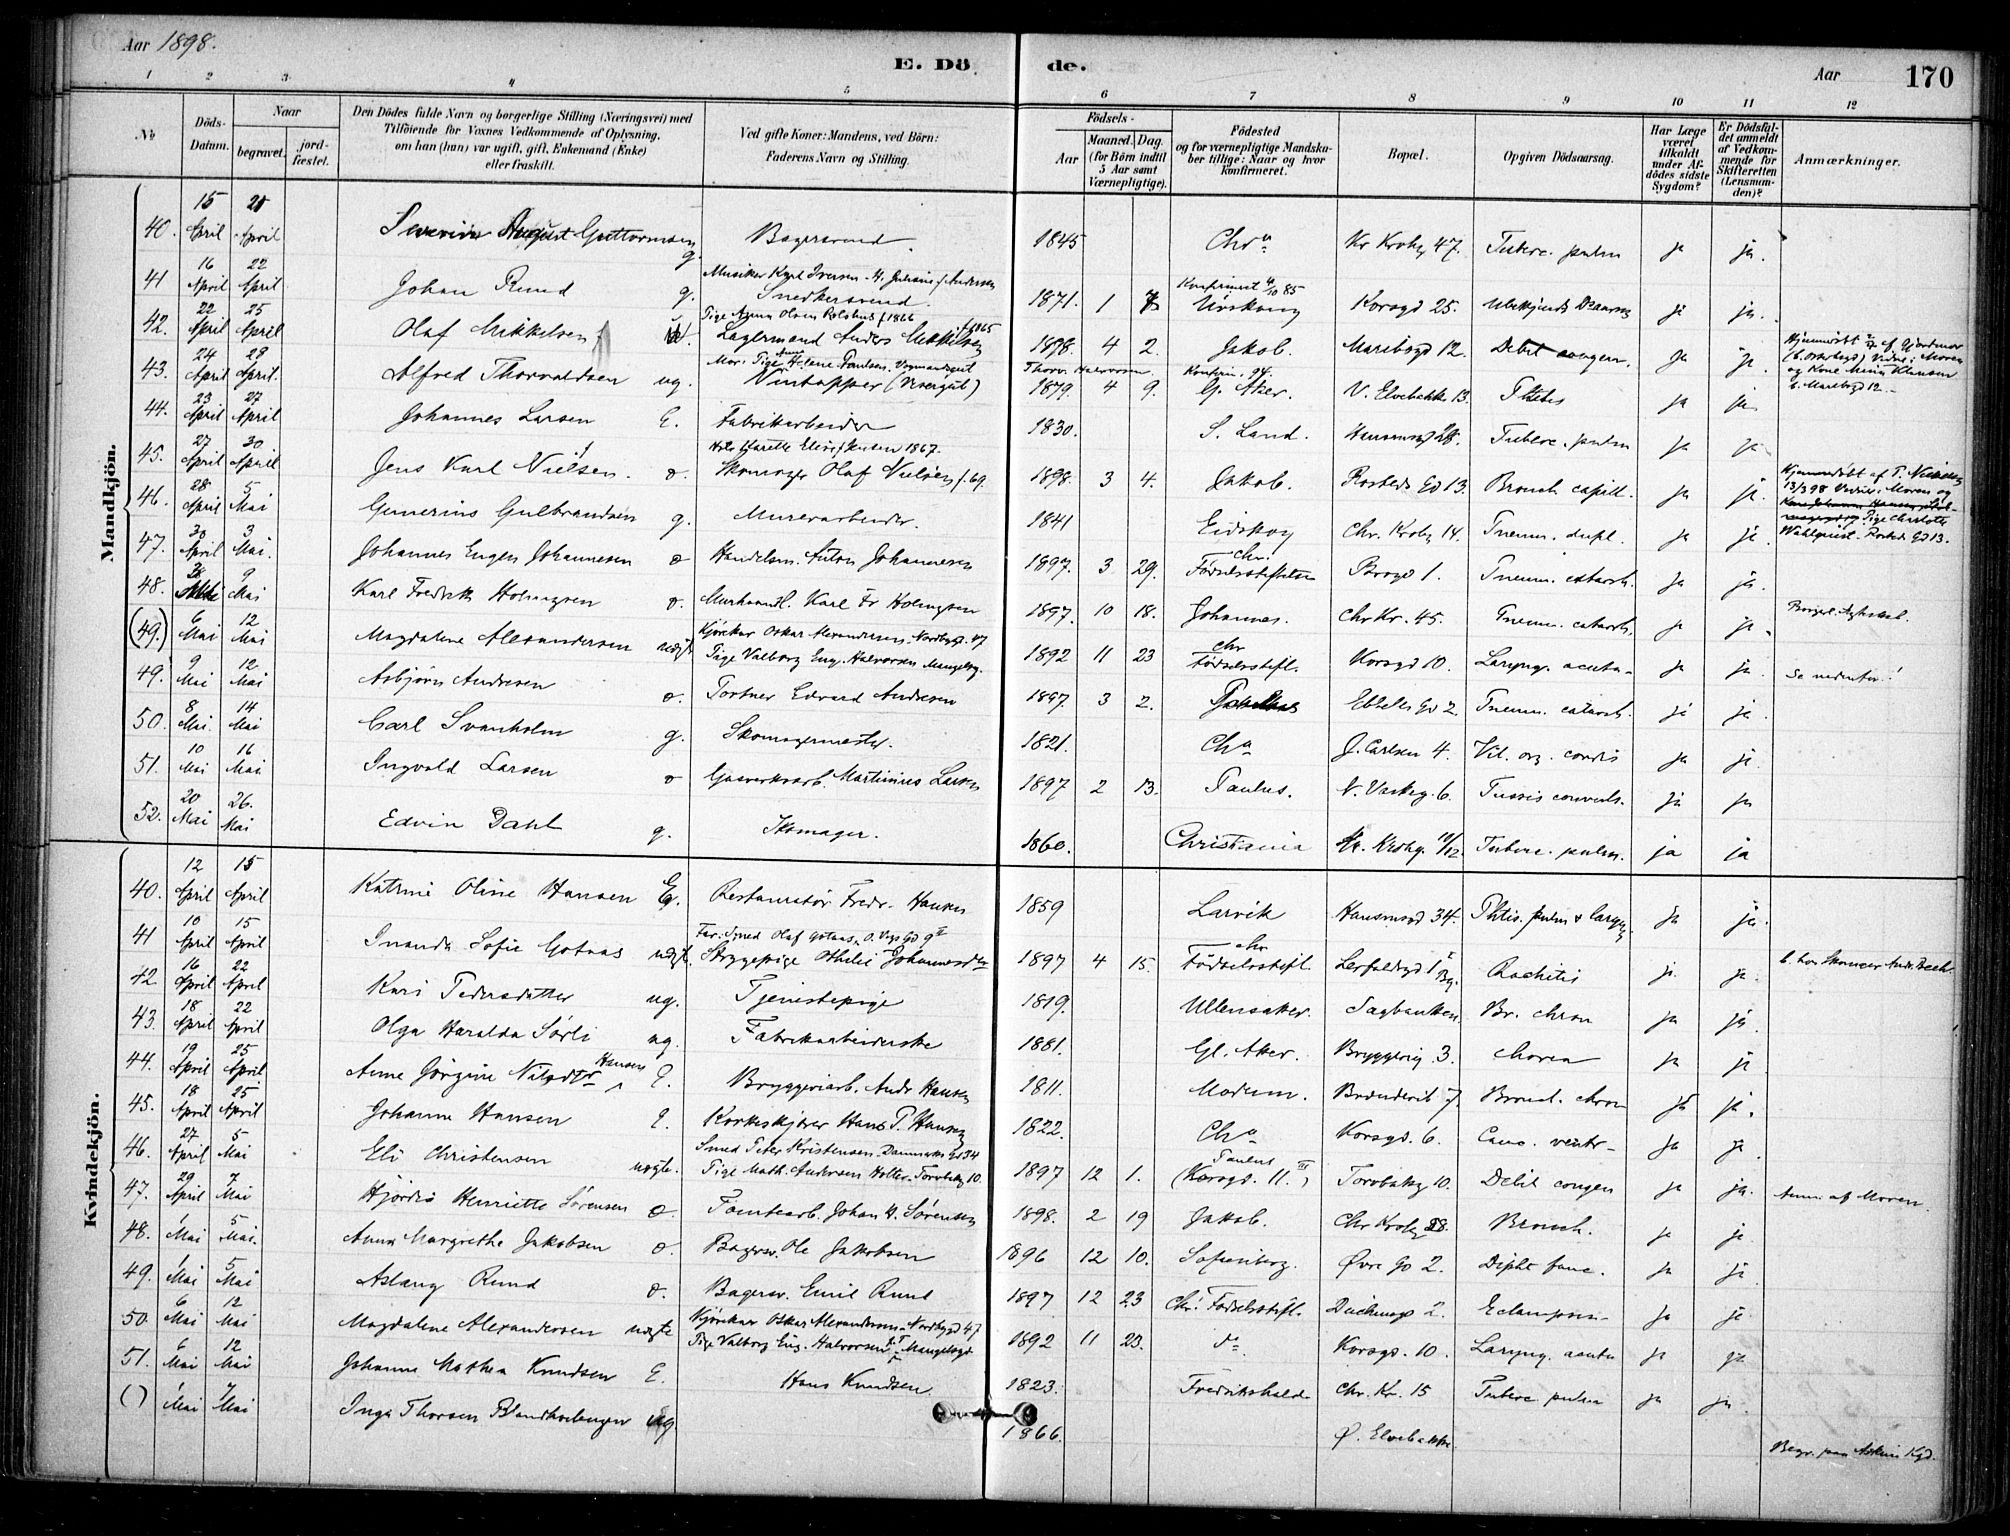 Aar 1898.
E. Dö de.
Aar
170
1 2 3 4 5 6 7 8 9 10 11 12
No
Döds-Datum.
Naar
begravet.
jord-fæstet.
Den Dödes fulde Navn og borgerlige Stilling (Næringsvei) med
Tilföiende for Voxnes Vedkommende af Oplysning,
om han (hun) var ugift, gift, Enkemand (Enke)
eller fraskilt.
Ved gifte Koner: Mandens, ved Börn:
Faderens Navn og Stilling.
Födsels-
Aar
Maaned. Dag.
(for Börn indtil
5 Aar samt
Værnepligtige).
Födested
og for værnepligtige Mandska-
ber tillige: Naar og hvor
konfirmeret.
Bopæl.
Opgiven Dödsaarsag.
Har Læge
været
tilkaldt
under Af-
dödes sidste
Sygdom?
Er Dödsfal-
det anmeldt
af Vedkom-
mende for
Skifteretten
(Lensman-
den)?
Anmærkninger.
Mandkjön.
40. 15 April 21 April Severin August Guttormsen g. Bagersvend. 1845 Chra Kr Krohg 47. Tuberc. pulm ja ja.
41 16 April 22 April Johan Rund g. Snedkersvend. 1871. 1 Konfirmert 4/10 85 Urskoug Korsgd 25. ja ja.
42. 22 April 25 April Olaf Mikkelsen Lagermand Anders Mikkelsen 1898. 4 2. Jakob. Maribogd 12. Debil congen. ja ja.
43. 24 April 29 April. Alfred Thorvaldsen ug. Vintapper (Visergut) 1879. 4 9. Konfirm. 94. G. Aker. V. Elvebakke 13. Phthis ja ja
44. 23 April 27 April Johannes Larsen E. Fabrikarbeider 1830. S. Land. Hausmsgd 28. Tuberc. pulm ja ja
45. 27 April 30 April Jens Karl Nielsen. o. Skomager Olaf Nielsen f. 69. 1898. 3 4. Jakob. Rosteds Gd 13. Bronch. capill. ja ja.
46. 28 April 5 Mai Gunerius Gulbrandsen g. Murerarbeider. 1841 Eidskog Chr. Krohg 14. Pneum. dupl. ja ja
47. 30 April 3 Mai. Johannes Eugen Johannesen o Handelsm. Anton Johannesen 1897. 3 29. Chr. Födselsstiftelse Brogd 1. Pneum. catarrh. ja ja.
48. 9 Mai Karl Fredrik Holmgren o. Murhaandl. Karl Fr Holmgren 1897. 10 18. Johannes. Chr Kr. 45. Pneum. catarrh. ja ja.
(49.) 6 Mai 12 Mai Magdalene Alexandersen uægte Kjörekar Oskar Alexandersen. Nordbygd. 47
Pige Valborg Eug. Halvorsen Mangelsg. 1892 11 23 Chr Födselsstift. Korsgd 10. Laryng. acuta ja ja Se nedenfor!
49. 9 Mai 12 Mai Asbjörn Andresen o. Portner Edvard Andresen 1897. 3 2. Ebbells Gd 2. Pneum. catarrh. ja ja.
50. 8 Mai. 14 Mai Carl Svanholm g. Skomagermester. 1821. Chra J. Carlsen 4. Vit. org. cordis ja ja
51. 10 Mai 16 Mai Ingvald Larsen o Gasverksarb. Martinius Larsen 1897 2 13. Paulus. N. Vaskeg. 6. Tussis convuls. ja ja
52. 20 Mai 26. Mai Edvin Dahl g. Skomager. 1860. Christiania Kr. Krohg. 10/12. Tuberc. pulm. ja ja
Kvindekjön.
40. 12 April 15 April Katrine Oline Hansen Restauratör Fredr. Hansen 1859 Larvik Hausmsgd 34. Phtis. pulm & laryng ja ja.
41 10 April 15 April Sofie Gotaas uægt. Far: Smed Olaf Gotaas, O. Vogs Gd 9 II
Strygepige Othilie Johannesd 1897 4 15. Chr Födselsstift. Rachitis ja. ja. b. hos Skomager Andr. Bech.
42 16 April 22 April Kari Pedersdatter ug. Tjenestepige 1819. Ullensaker. Sagbanken. Br. chron ja ja.
43. 18 April 22 April Olga Haralda Sörli ug. Fabrikarbeiderske 1881. Gl. Aker. Bryggerig. 3. Chorea ja ja
44. 19 April 25 April Anne Görgine Nilsdtr Hansen E. Bryggeriarb. Andr Hansen 1811. Modum. Brænderib 7. Bronch. chron ja ja.
45. 18 April 25 April Johanne Hansen E. Korkeskjærer Hans P. Hansen 1822. Chra Korsgd. 6. Canc. ventr. ja ja
46. 27 April 5 Mai Eli Christensen uægte. Smed Peter Kristensen. Danmarks Gd 34
Pige Math. Andersen Holter. Torvbakg 10. 1897 12 1. Paulus (Korsgd. 11. III) Torvbakg 10. Debil congen ja ja. Anm. af Moren.
47. 29 April 7 Mai Hjördis Henriette Sörensen o. Tomtearb. Johan H. Sörensen 1898. 2 19 Jakob. Chr Krohg 28. Bronch. ja ja.
48. 1 Mai 5 Mai. Anna Margrethe Jakobsen o. Bagersv. Ole Jakobsen 1896 12 10. Sofienberg. Øvre Gd 2. Dipht fauc. ja ja
49. 1 Mai 5 Mai Aslaug Rund o. Bagersv. Emil Rund 1897 12 23 Chr. Födselsstift. Eclampsia ja ja
50. 6 Mai 12 Mai Magdalene Alexandersen uægte Kjörekar Oskar Alexandersen Nordbygd 47
Pige Valborg Eug. Halvorsen Mangelsgd 1892 11 23. do Korsgd. 10. Laryng. acuta ja ja
51. 6 Mai 12 Mai Johanne Mathea Knudsen E. Hans Knudsen. 1823. Fredrikshald Chr. Kr. 15 Tuberc pulm ja ja.
( ) 1 Mai 7 Mai Inga Thorsen ug. 1866. Ø. Elvebakke. Begr. paa Askim Kgd.